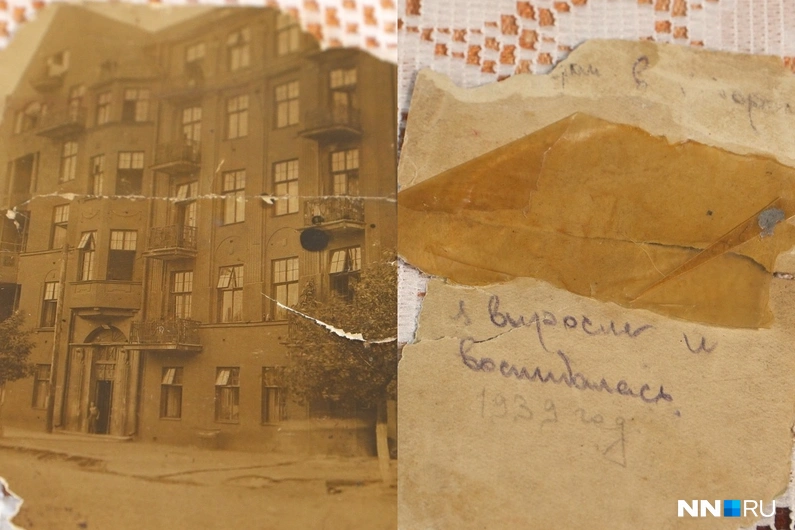 дом в
я выросла и
воспиталась.
1939 год
NN RU